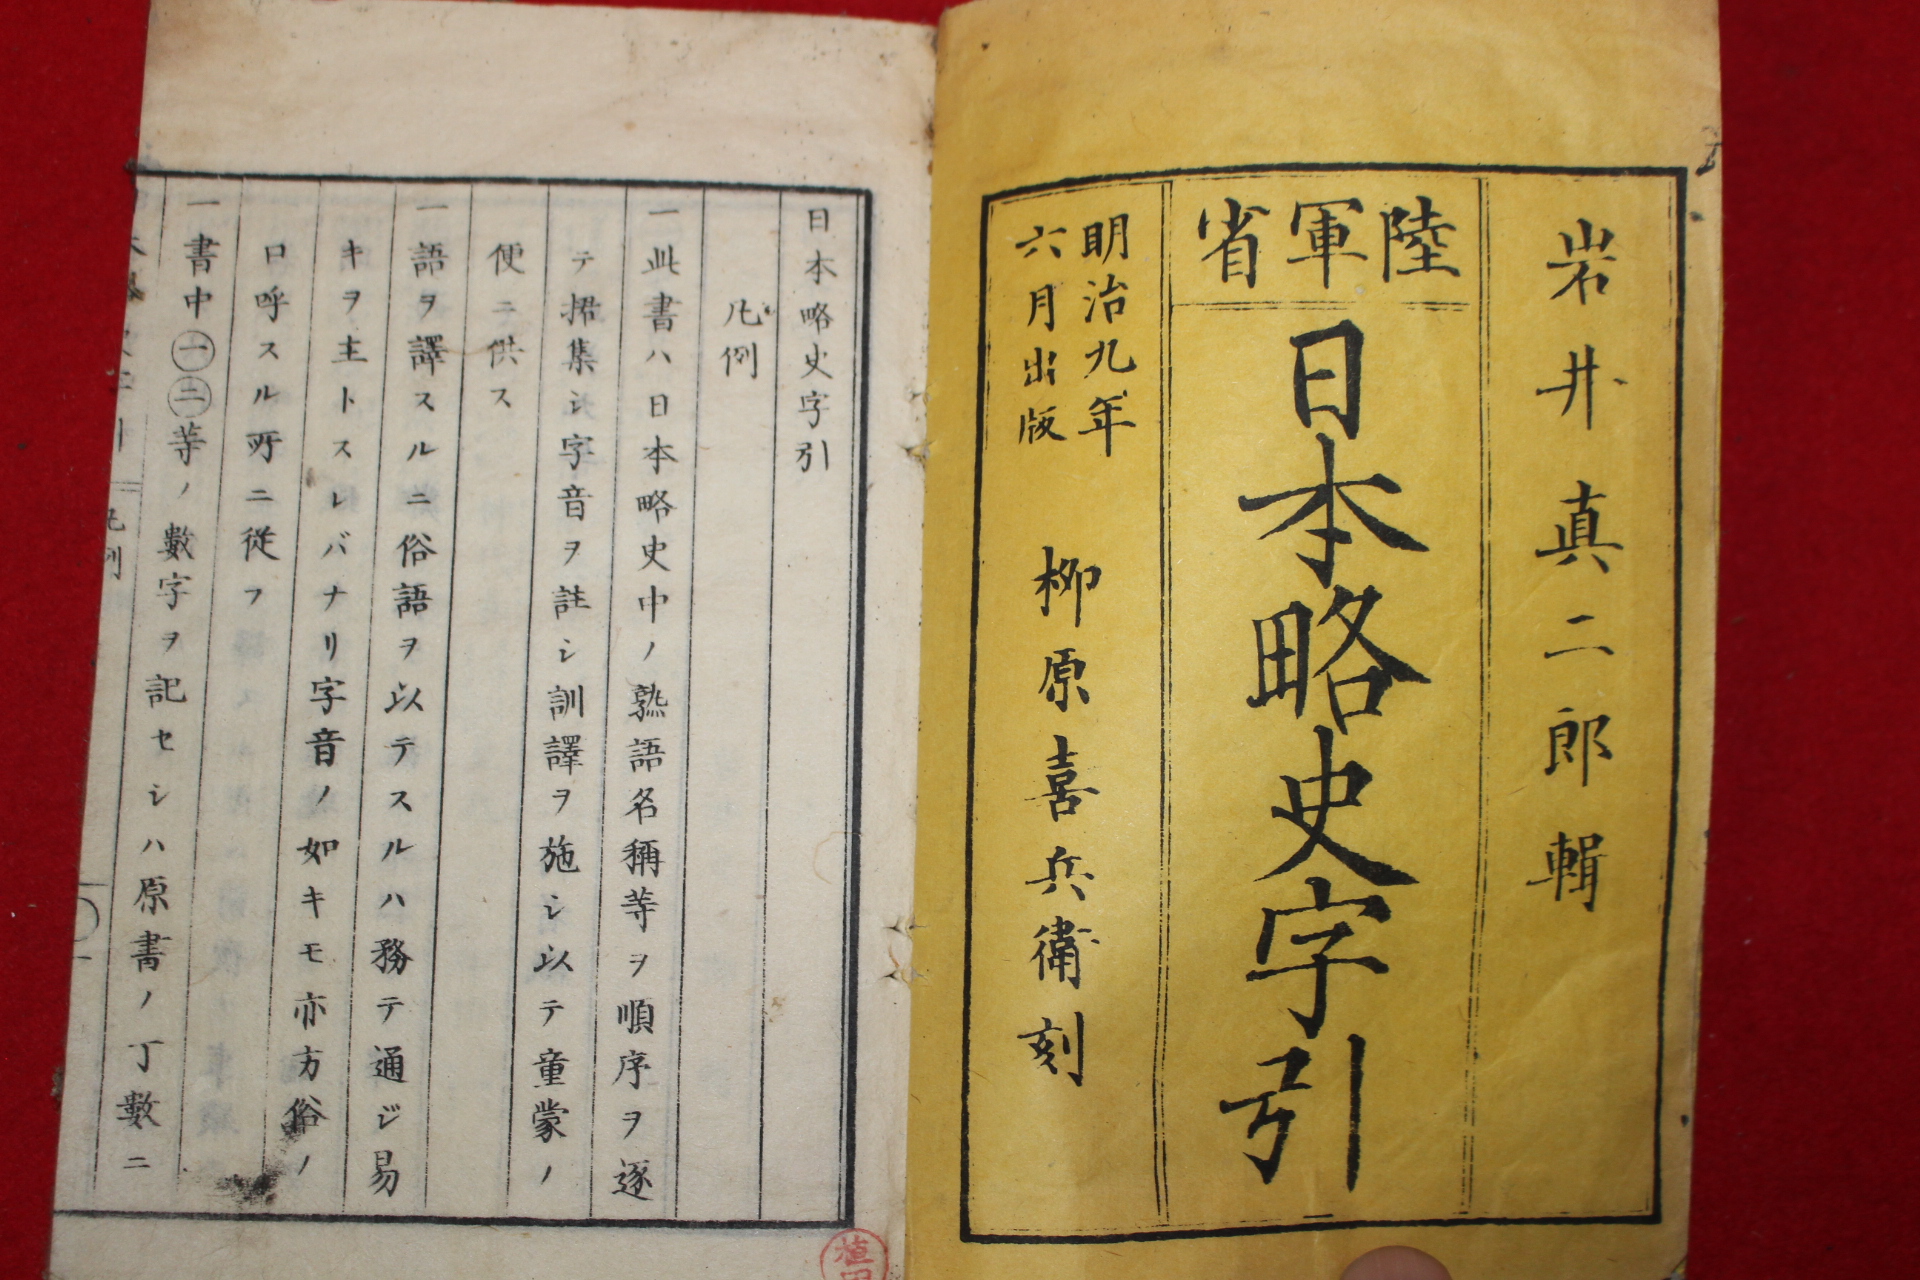 岩井真二郎輯
陸軍省
日本略史字引
明治九年
六月出版
柳原喜兵衛刻
日本略史字引
凡例
一此書ハ日本略史中ノ熟語名稱等ヲ順序ヲ逐
テ捃集シ字音ヲ註シ訓譯ヲ施シ以テ童蒙ノ
便ニ供ス
一語ヲ譯スルニ俗語ヲ以テスルハ務テ通ジ易
キヲ主トスレバナリ字音ノ如キモ亦方俗ノ
口呼スル所ニ從フ
一書中㊀㊁等ノ數字ヲ記セシハ原書ノ丁數ニ
凡例
植田